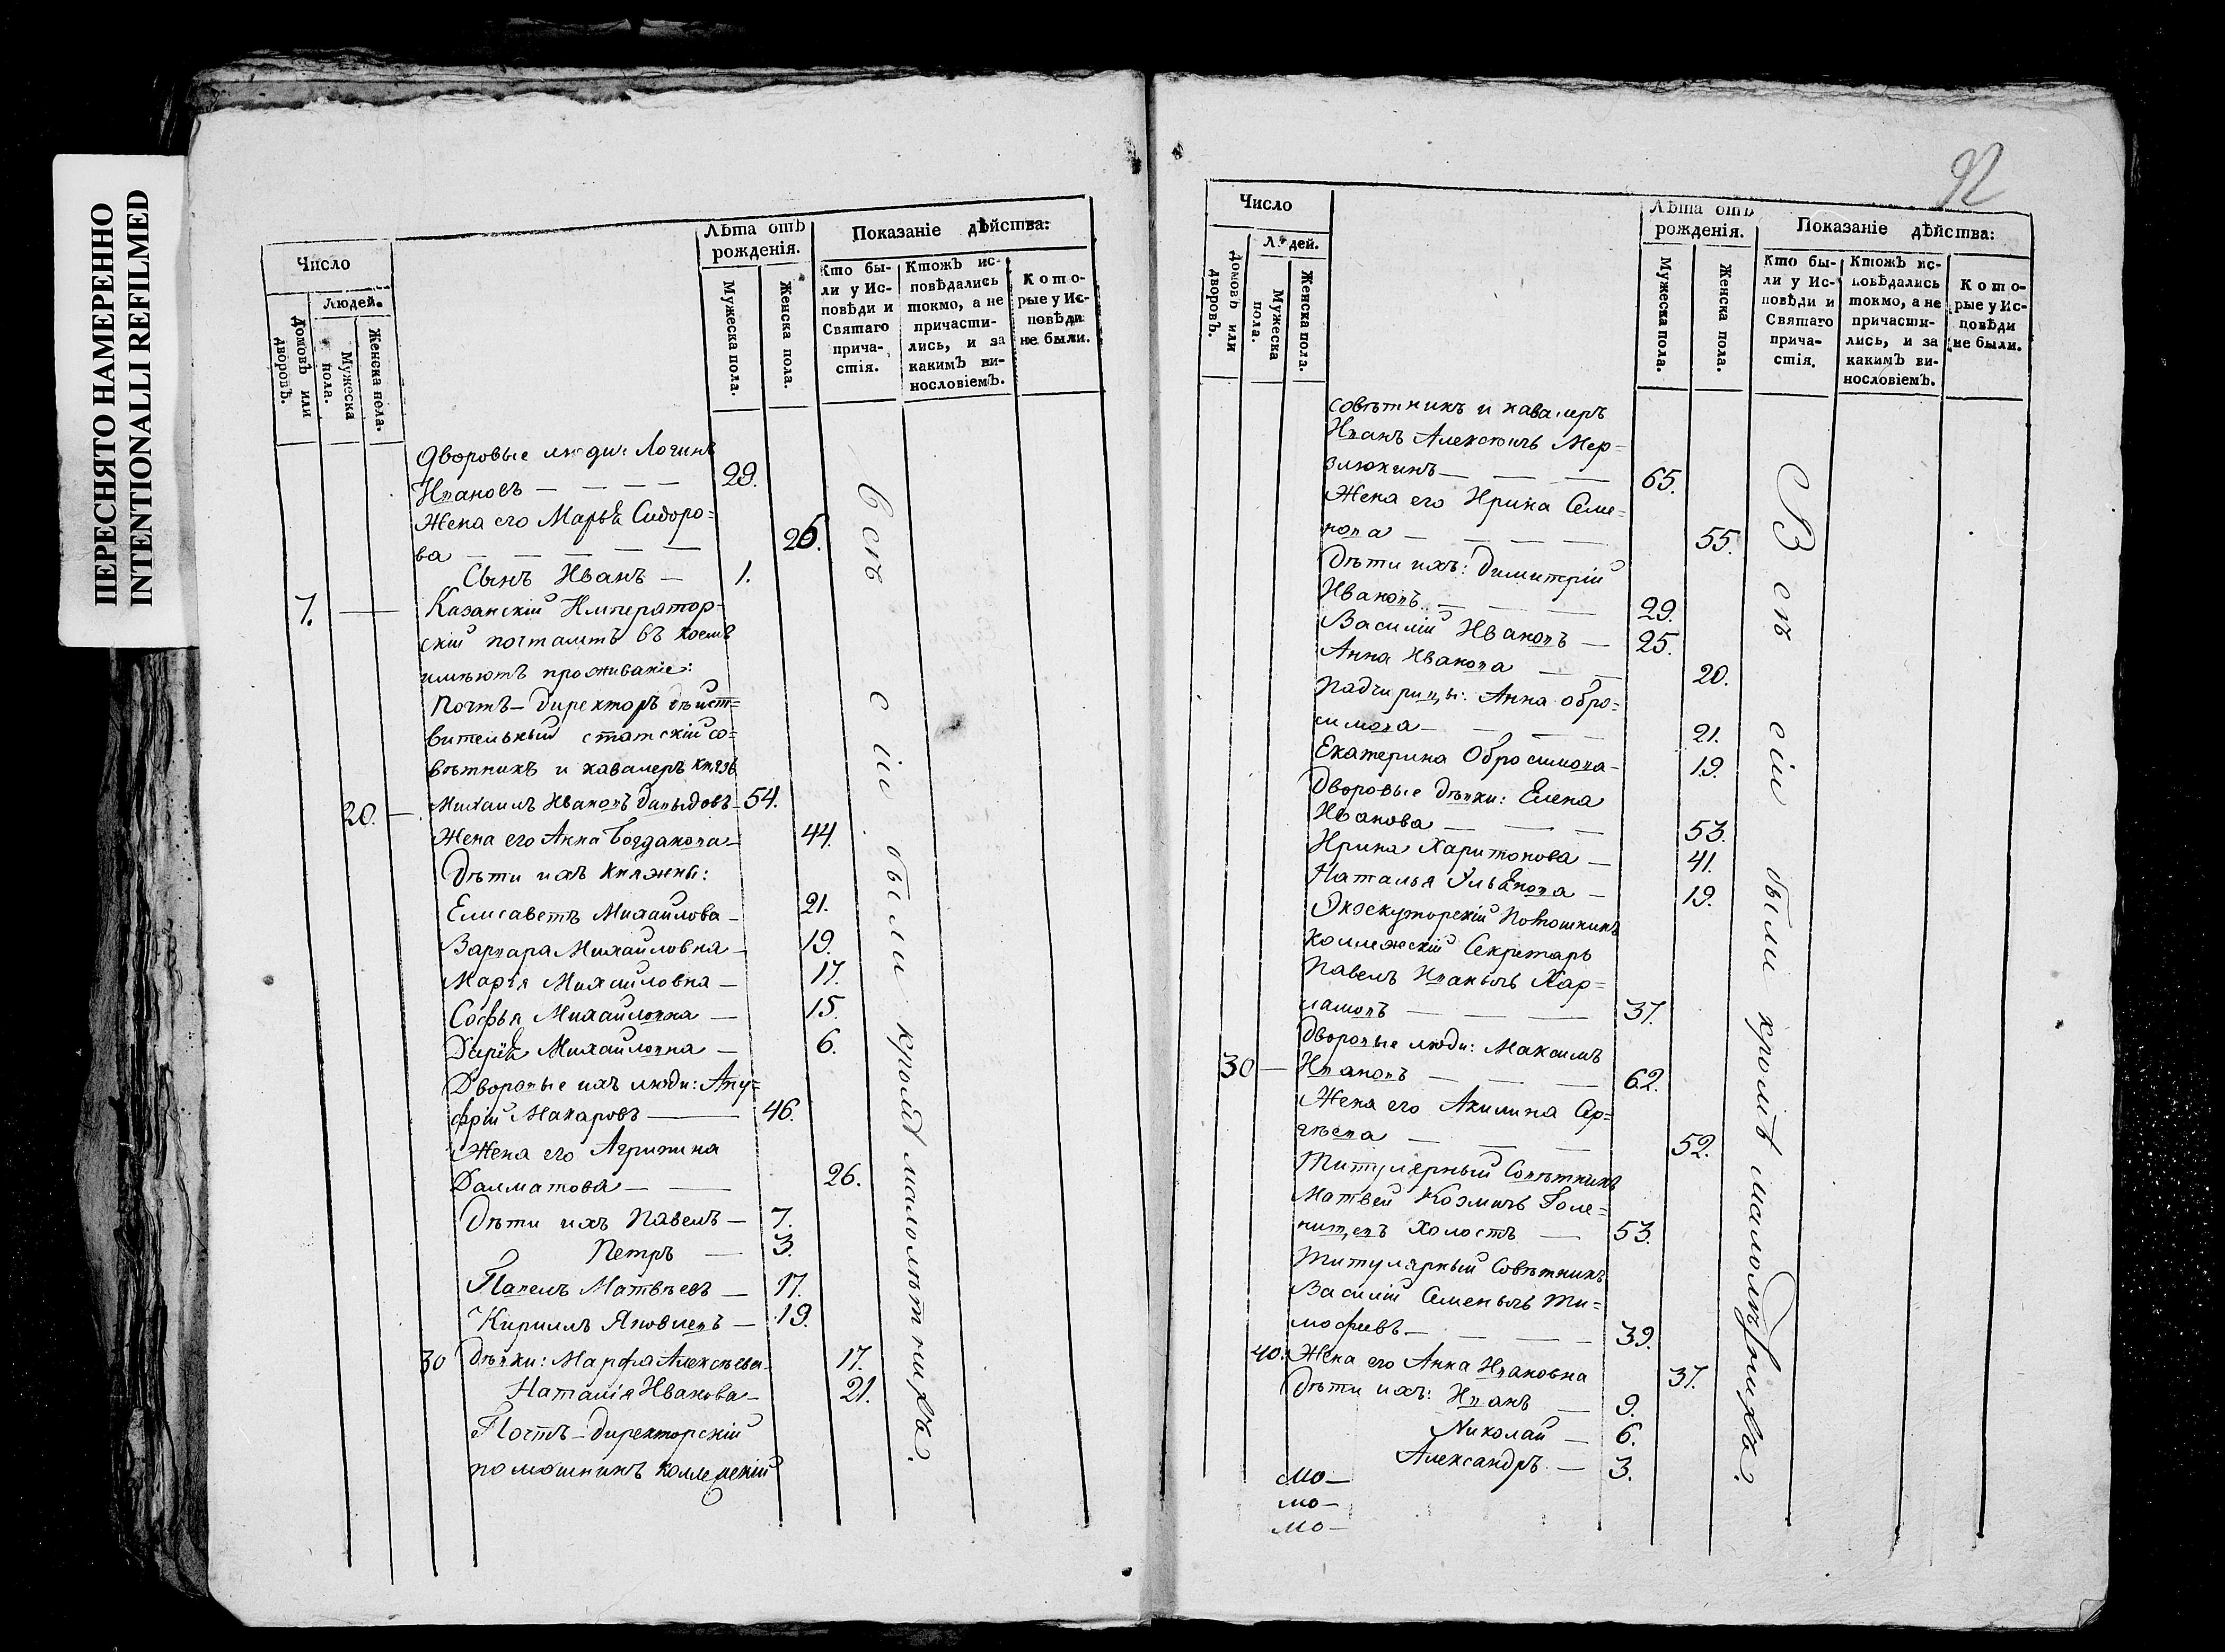 ПЕРЕСНЯТО НАМЕРЕННО
INTENTIONALLI REFILMED
Число
Людей.
Домовъ или дворовъ.
Мужеска пола.
Женска пола.
Лѣта отъ рожденія.
Мужеска пола.
Женска пола.
Показаніе дѣйства:
Кто были у Исповѣди и Святаго причастія.
Ктожъ исповѣдались токмо, а не причастились, и за какимъ винословіемъ.
Которые у Исповѣди не были.
Дворовые люди: Логинъ
Ивановъ — 29.
Жена его Марья Сидоро=
ва — 26.
Сынъ Иванъ — 1.
7. — Казанскій Император-
скій почтамтъ въ коемъ
имѣютъ проживаніе:
Почтъ-Директоръ дѣйст=
вительный статскій со=
вѣтникъ и кавалеръ князь
20. — Михаилъ Ивановъ Давыдовъ — 54.
Жена его Анна Богданова — 44.
Дѣти ихъ княжны:
Елисаветъ Михаилова — 21.
Варвара Михайловна — 19.
Марія Михайловна — 17.
Софья Михайловна — 15.
Дарья Михайловна — 6.
Дворовые ихъ люди: Ану=
фрій Макаровъ — 46.
Жена его Агрипина
Далматова — 26.
Дѣти ихъ Павелъ — 7.
Петръ — 3.
Павелъ Матвѣевъ — 17.
Кирилъ Яковлевъ — 19.
30 Дѣвки: Марфа Алексѣева — 17.
Наталія Иванова — 21.
Почтъ-Директорскій
помошникъ коллежскій
всѣ сіи были кромѣ малолѣтнихъ.
92
Число
Людей.
Домовъ или дворовъ.
Мужеска пола.
Женска пола.
Лѣта отъ рожденія.
Мужеска пола.
Женска пола.
Показаніе дѣйства:
Кто были у Исповѣди и Святаго причастія.
Ктожъ исповѣдались токмо, а не причастились, и за какимъ винословіемъ.
Которые у Исповѣди не были.
совѣтникъ и кавалеръ
Иванъ Алексѣичь Мер=
злюкинъ — 65.
Жена его Ирина Семе=
нова — 55.
Дѣти ихъ: Димитрій
Ивановъ — 29.
Василій Ивановъ — 25.
Анна Иванова — 20.
Падчирицы: Анна Обро=
симова — 21.
Екатерина Обросимова — 19.
Дворовые дѣвки: Елена
Иванова — 53.
Ирина Харитонова — 41.
Наталья Ульянова — 19.
Экзекуторскій Помошникъ
Коллежскій Секретарь
Павелъ Иванычь Хар=
ламовъ — 37.
Дворовые люди: Максимъ
30 — Ивановъ — 62.
Жена его Акилина Сер=
гѣева — 52.
Титулярный Совѣтникъ
Матвей Козмичь Голе=
нищевъ холостъ — 53.
Титулярный Совѣтникъ
Василій Семенычь Ти=
мофеевъ — 39.
40. Жена его Анна Ивановна 37.
Дѣти ихъ: Иванъ — 9.
Николай — 6.
Александръ — 3.
Мо—
мо—
мо—
Всѣ сіи были кромѣ малолѣтнихъ.